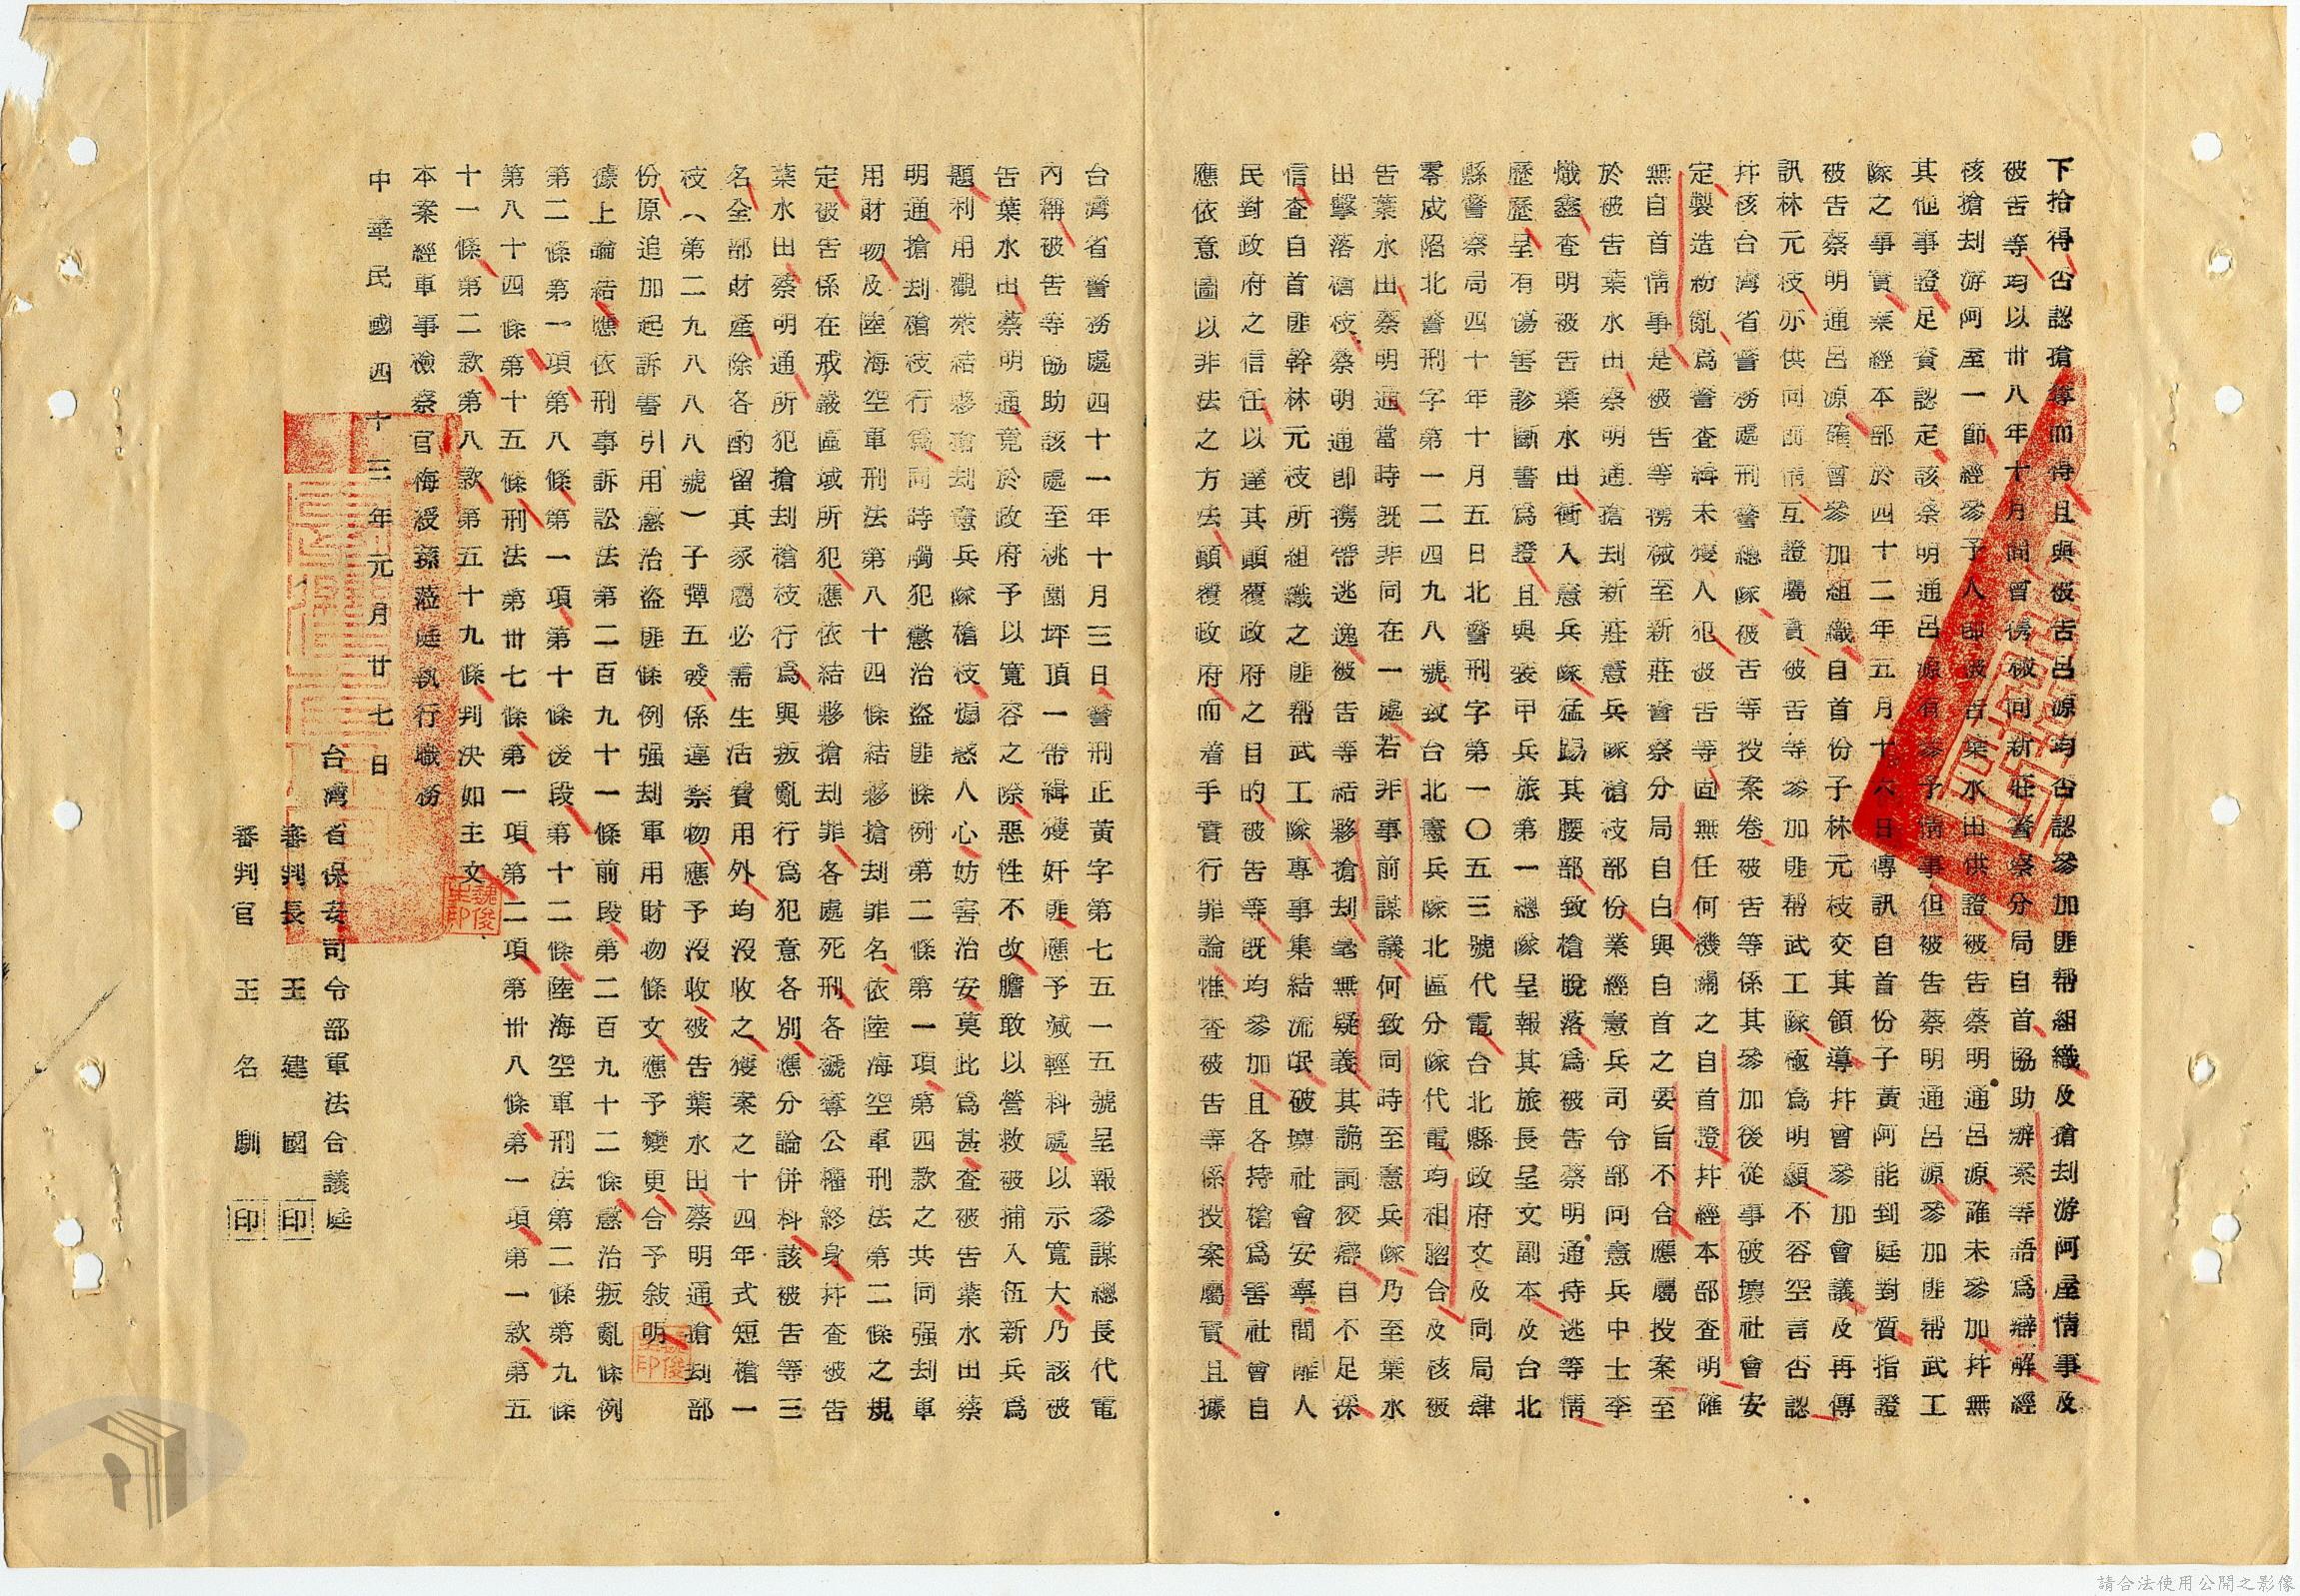 下拾得否認搶奪而得且與被告呂源均否認參加匪幫組織及搶刦游阿屋情事及
被告等均以卅八年十月間曾携械向新莊警察分局自首協助辦案等語爲辯解經
核搶刦游阿屋一節經參予人即被告葉水田供證被告蔡明通呂源確未參加幷無
其他事證足資認定該蔡明通呂源有參予情事但被告蔡明通呂源參加匪幫武工
隊之事實業經本部於四十二年五月十六日傳訊自首份子黃阿能到庭對質指證
被告蔡明通呂源確曾參加組織自首份子林元枝交其領導幷曾參加會議及再傳
訊林元枝亦供同前情互證屬實被告等參加匪幫武工隊極爲明顯不容空言否認
幷核台灣省警務處刑警總隊被告等投案卷被告等係其參加後從事破壞社會安
定製造紛亂爲警查緝未獲人犯被告等固無任何機關之自首證幷經本部查明確
無自首情事是被告等携械至新莊警察分局自白與自首之要旨不合應屬投案至
於被告葉水田蔡明通搶刦新莊憲兵隊槍枝部份業經憲兵司令部向憲兵中士李
熾鑫查明被告葉水田衝入憲兵隊猛踢其腰部致槍脫落爲被告蔡明通持逃等情
歷歷呈有傷害診斷書爲證且與裝甲兵旅第一總隊呈報其旅長呈文副本及台北
縣警察局四十年十月五日北警刑字第一〇五三號代電台北縣政府文及同局肆
零戍陷北警刑字第一二四九八號致台北憲兵隊北區分隊代電均相脗合及核被
告葉水田蔡明通當時既非同在一處若非事前謀議何致同時至憲兵隊乃至葉水
田擊落槍枝蔡明通即携帶逃逸被告等結夥搶刦毫無疑義其詭詞狡辯自不足採
信查自首匪幹林元枝所組織之匪幫武工隊專事集結流氓破壞社會安寧間離人
民對政府之信任以達其顚覆政府之目的被告等既均參加且各持槍爲害社會自
應依意圖以非法之方法顚覆政府而着手實行罪論惟查被告等係投案屬實且據
台灣省警務處四十一年十月三日警刑正黃字第七五一五號呈報參謀總長代電
內稱被告等協助該處至桃園坪頂一帶緝獲奸匪應予減輕科處以示寬大乃該被
告葉水田蔡明通竟於政府予以寬容之際惡性不改膽敢以營救被捕入伍新兵爲
題利用觀衆結夥搶刦憲兵隊槍枝煽惑人心妨害治安莫此爲甚查被告葉水田蔡
明通搶刦槍枝行爲同時觸犯懲治盜匪條例第二條第一項第四款之共同强刦軍
用財物及陸海空軍刑法第八十四條結夥搶刦罪名依陸海空軍刑法第二條之規
定被告係在戒嚴區域所犯應依結夥搶刦罪各處死刑各褫奪公權終身幷查被告
葉水田蔡明通所犯搶刦槍枝行爲與叛亂行爲犯意各別應分論併科該被告等三
名全部財產除各酌留其家屬必需生活費用外均沒收之獲案之十四年式短槍一
枝（第二九八八八號）子彈五發係違禁物應予沒收被告葉水田蔡明通搶刦部
份原追加起訴書引用懲治盜匪條例强刦軍用財物條文應予變更合予敍明
據上論結應依刑事訴訟法第二百九十一條前段第二百九十二條懲治叛亂條例
第二條第一項第八條第一項第十條後段第十二條陸海空軍刑法第二條第九條
第八十四條第十五條刑法第卅七條第一項第二項第卅八條第一項第一款第五
十一條第二款第八款第五十九條判決如主文
本案經軍事檢察官梅綬蓀蒞庭執行職務
中華民國四十三年元月廿七日
台灣省保安司令部軍法合議庭
審判長 王建國 印
審判官 王名馴 印
魏俊生印
請合法使用公開之影像